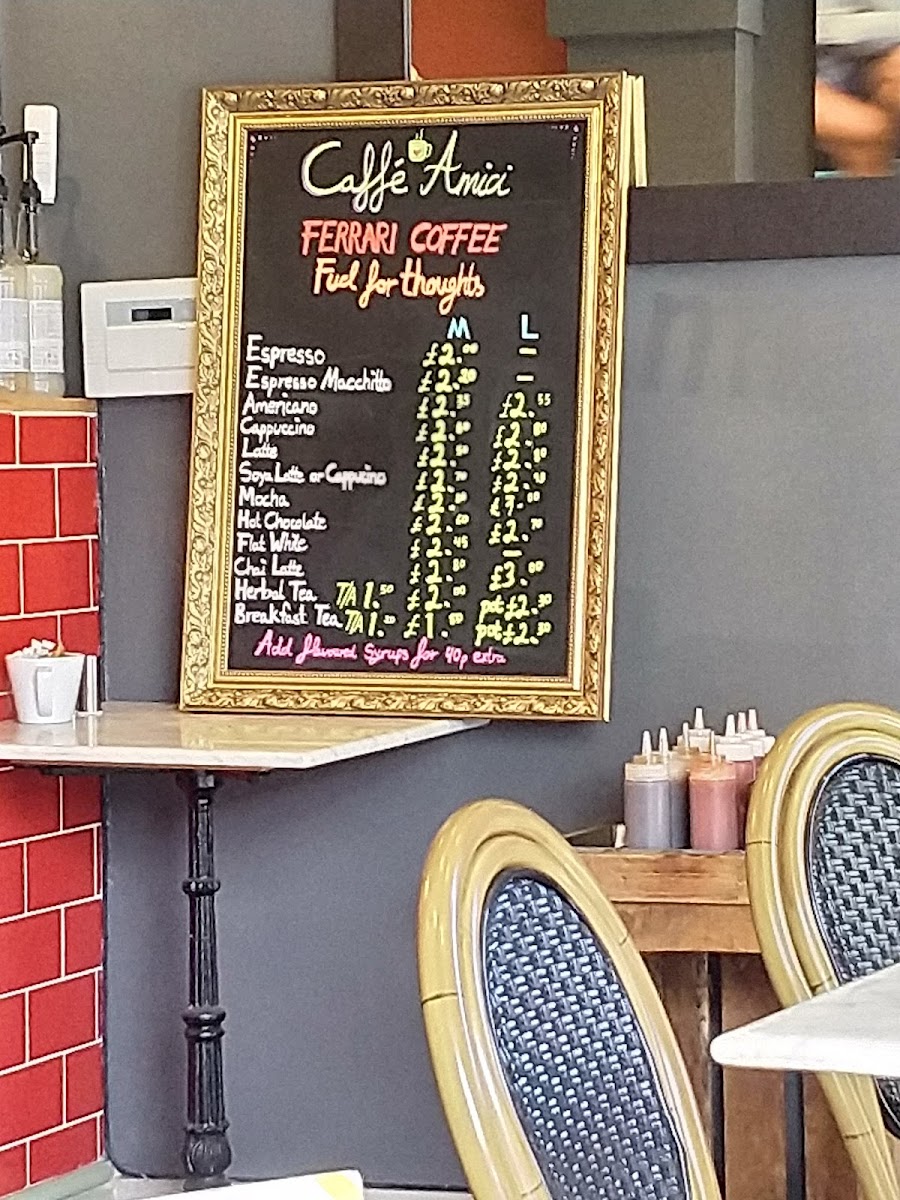 Caffé Amici
FERRARI COFFEE
Fuel for thoughts
M L
Espresso £2.00 –
Espresso Macchitto £2.20 –
Americano £2.35 £2.55
Cappuccino £2.50 £2.80
Latte £2.50 £2.80
Soya Latte or Cappucino £2.70 £2.95
Mocha £2.80 £3.00
Hot Chocolate £2.60 £2.70
Flat White £2.45 –
Chai Latte £2.80 £3.00
Herbal Tea T/A 1.50 £2.00 pot £2.30
Breakfast Tea T/A 1.20 £1.80 pot £2.30
Add flavoured Syrups for 40p extra